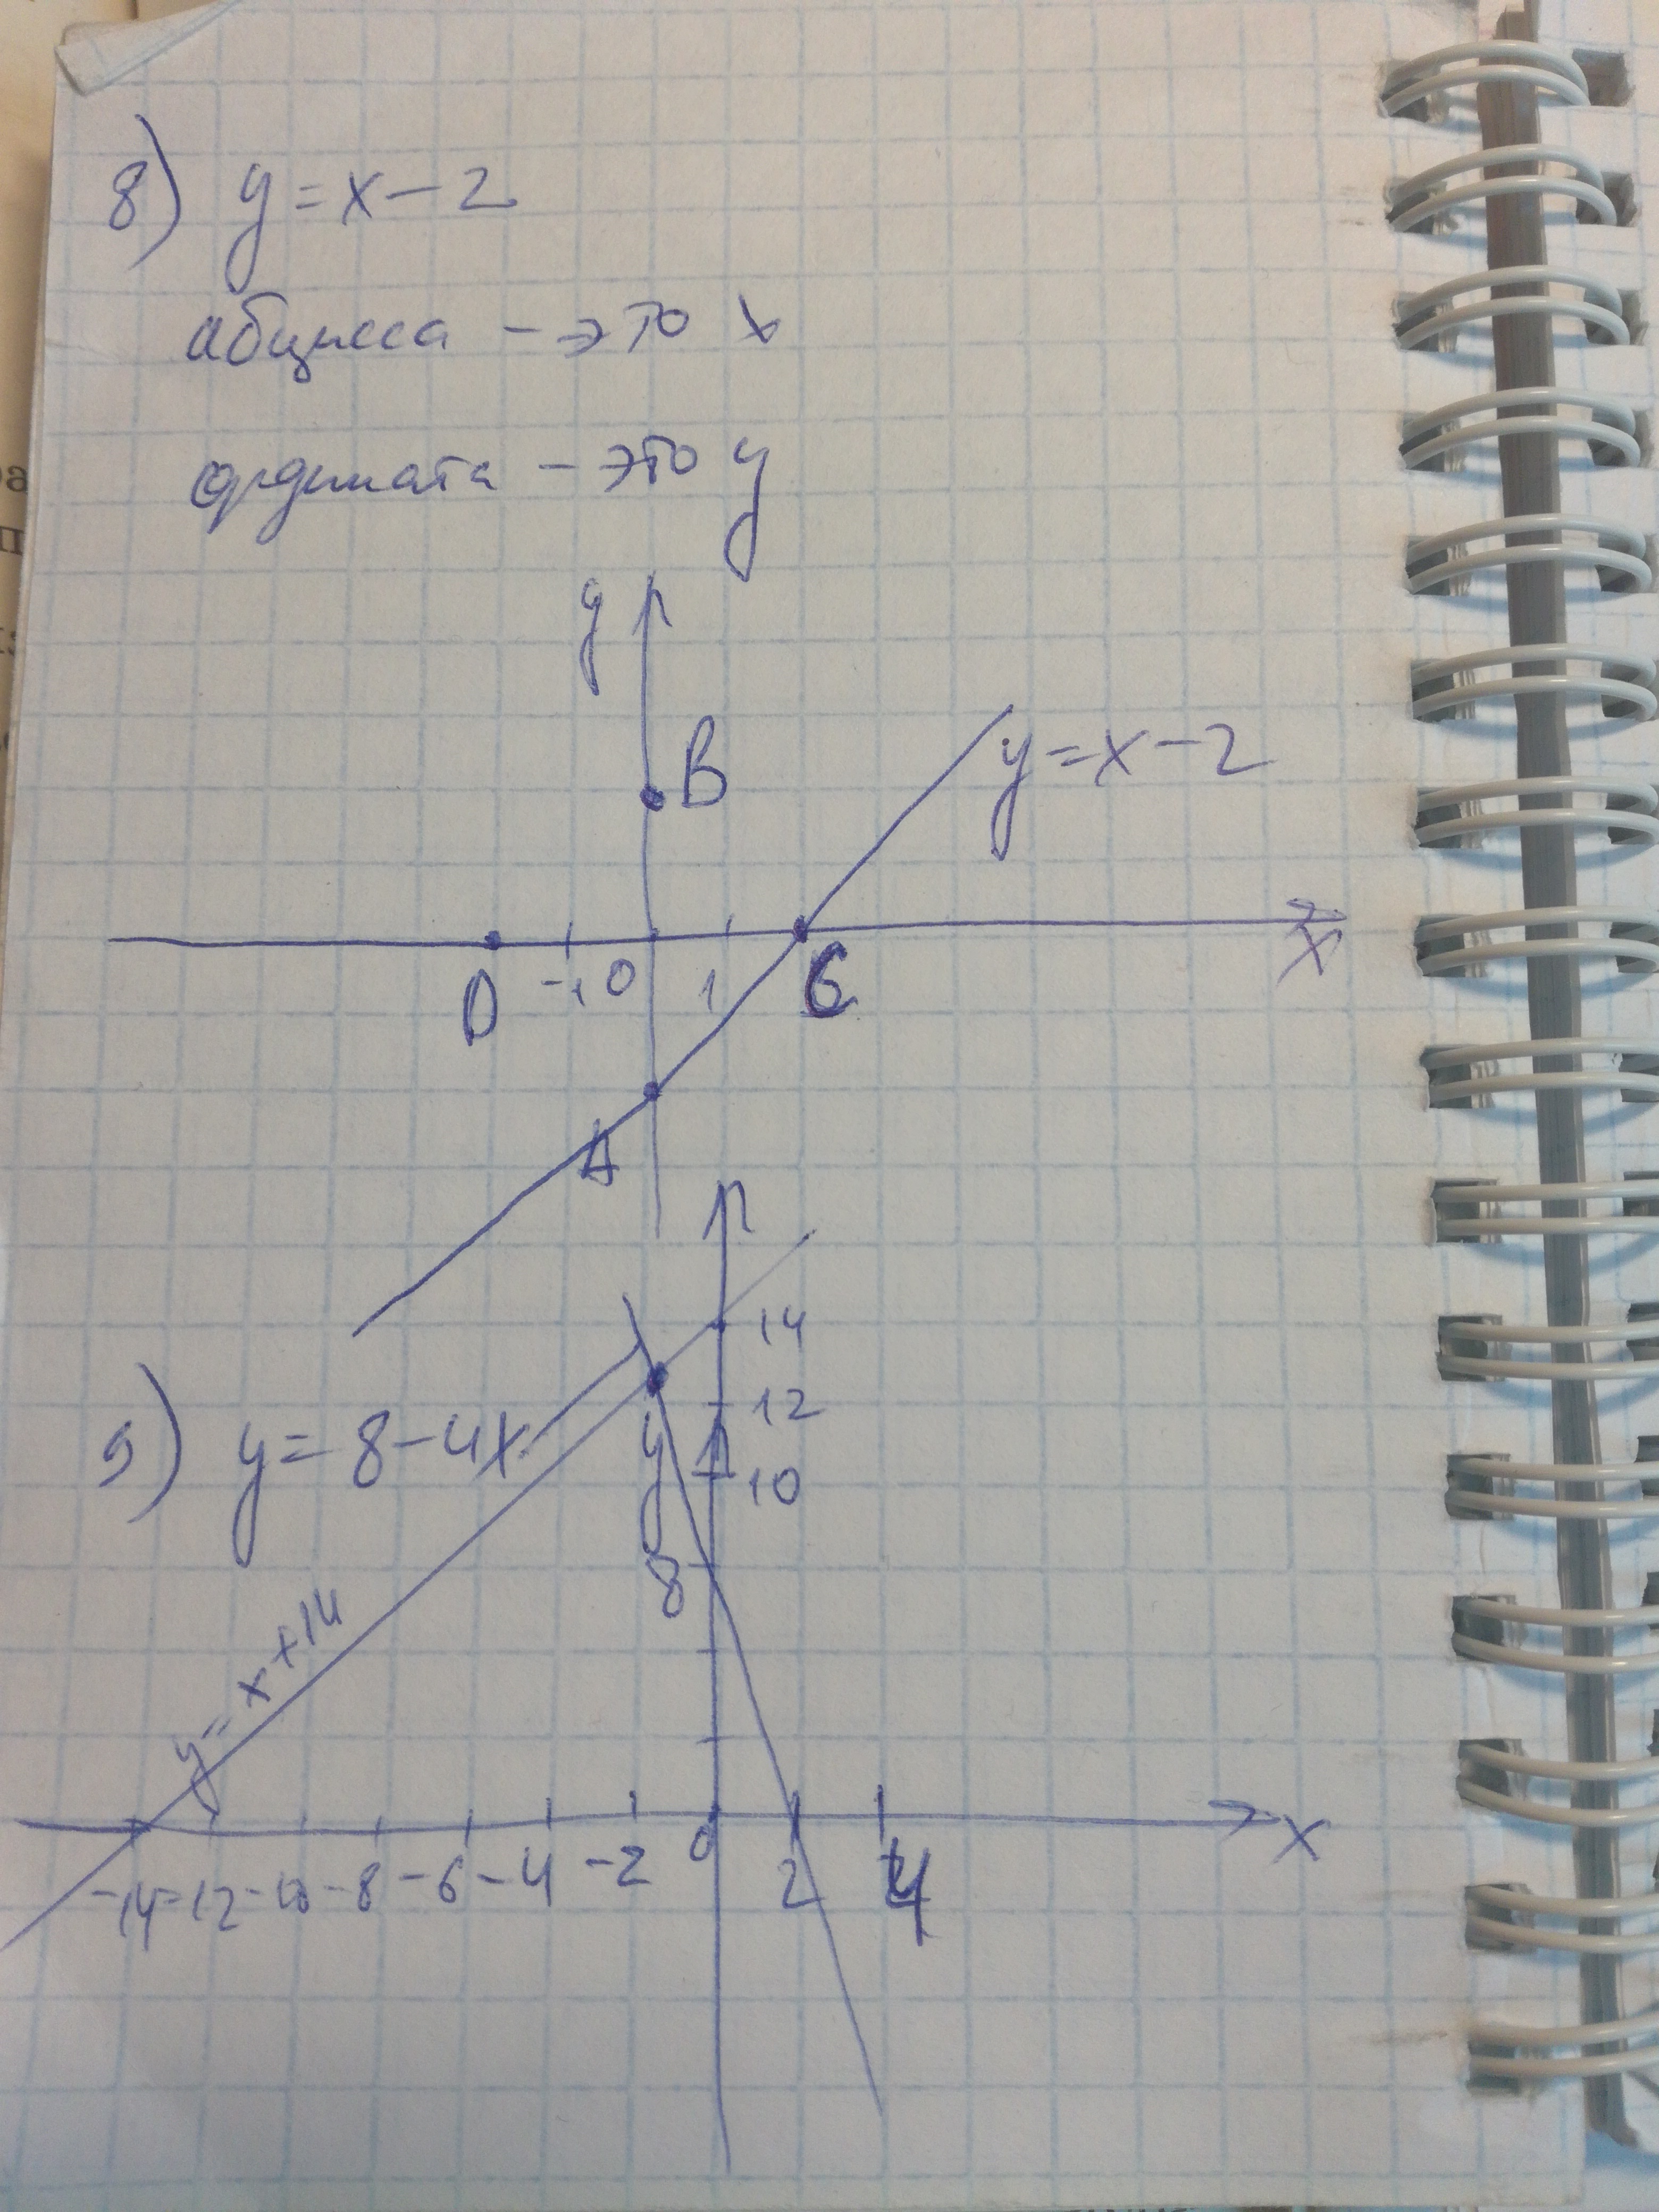 8) y = x - 2
абцисса - это x
ордината - это y
y
B
y = x - 2
D -1 0 1 C x
A
14
9) y = 8 - 4x y 12
10
8
y = x + 14
-14 -12 -10 -8 -6 -4 -2 0 2 4 x